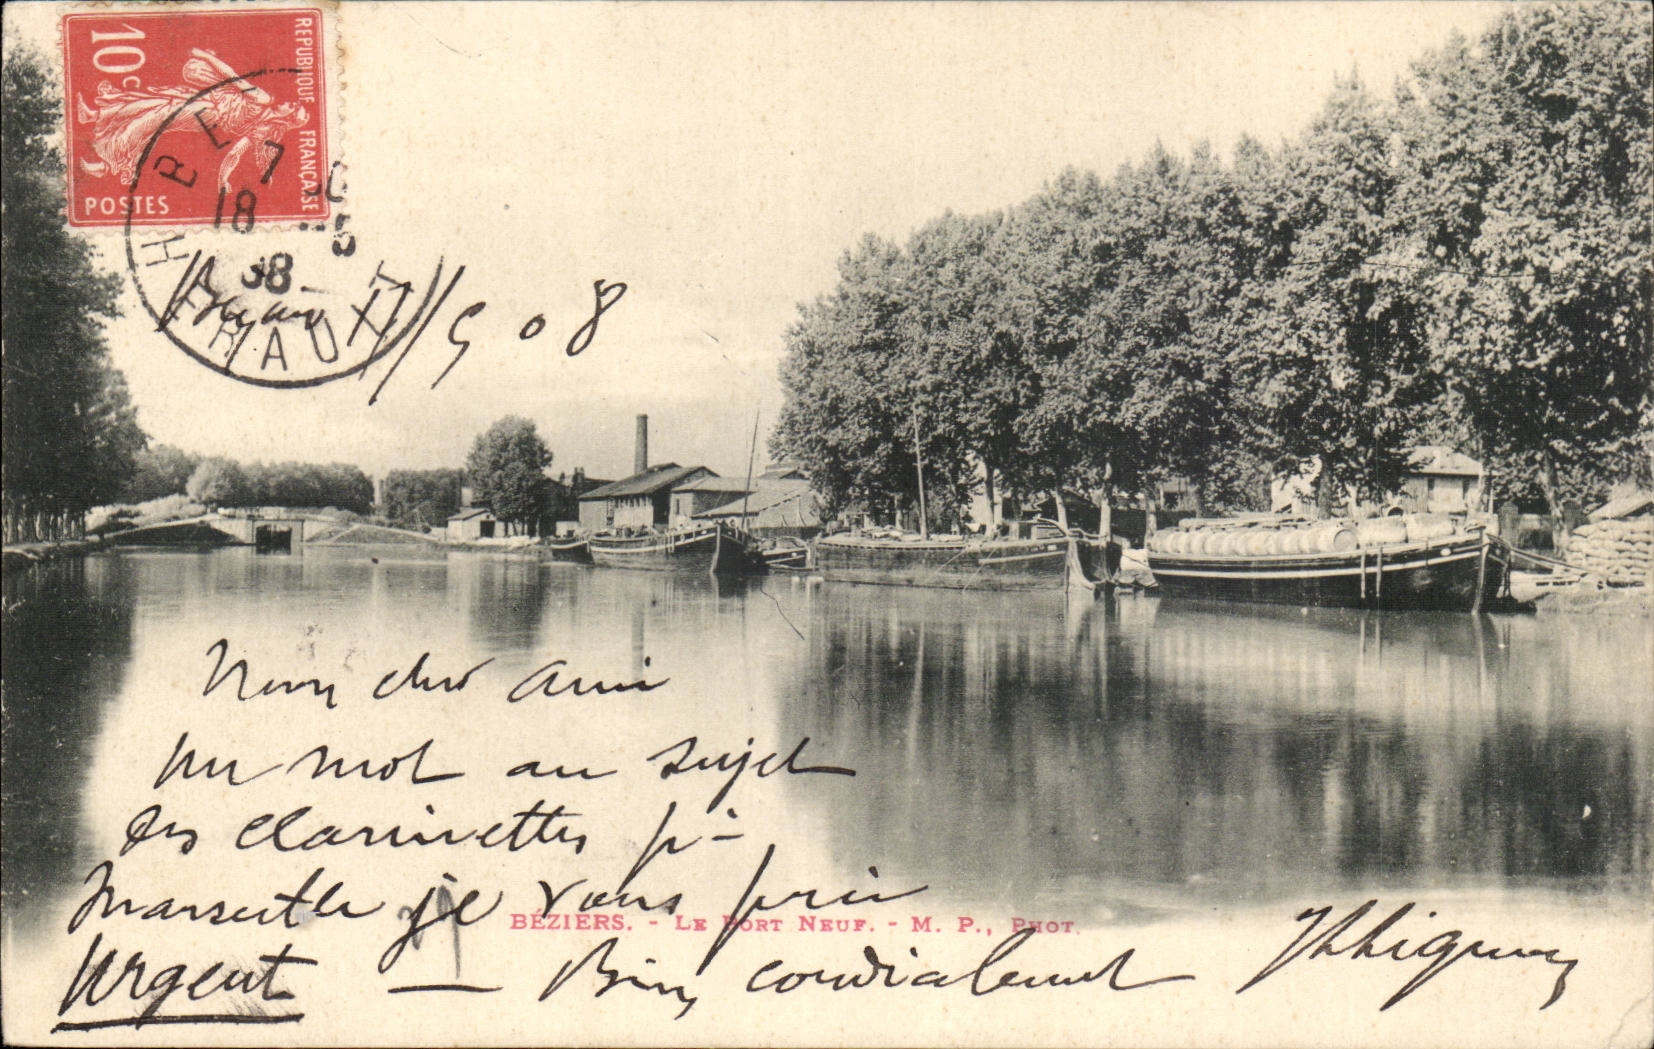 10c
REPUBLIQUE FRANÇAISE
POSTES
7
18 -5
08
HERAULT
/5 08
Mon cher ami
un mot au sujet
des clarinettes pr
Marseille je vous prie
Urgent — Bien cordialement
BÉZIERS. - LE PORT NEUF. - M. P., PHOT.